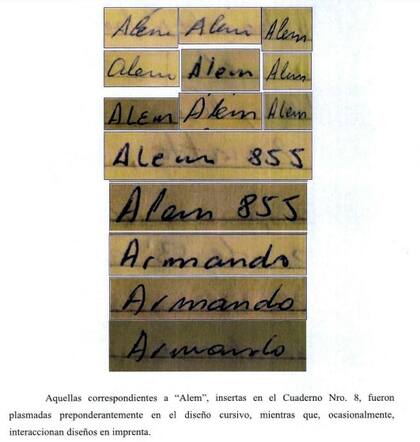 Alem Alem Alem
Alem Alem Alem
ALEm Alem Alem
Alem 855
Alem 855
Armando
Armando
Armando
Aquellas correspondientes a “Alem”, insertas en el Cuaderno Nro. 8, fueron
plasmadas preponderantemente en el diseño cursivo, mientras que, ocasionalmente,
interaccionan diseños en imprenta.